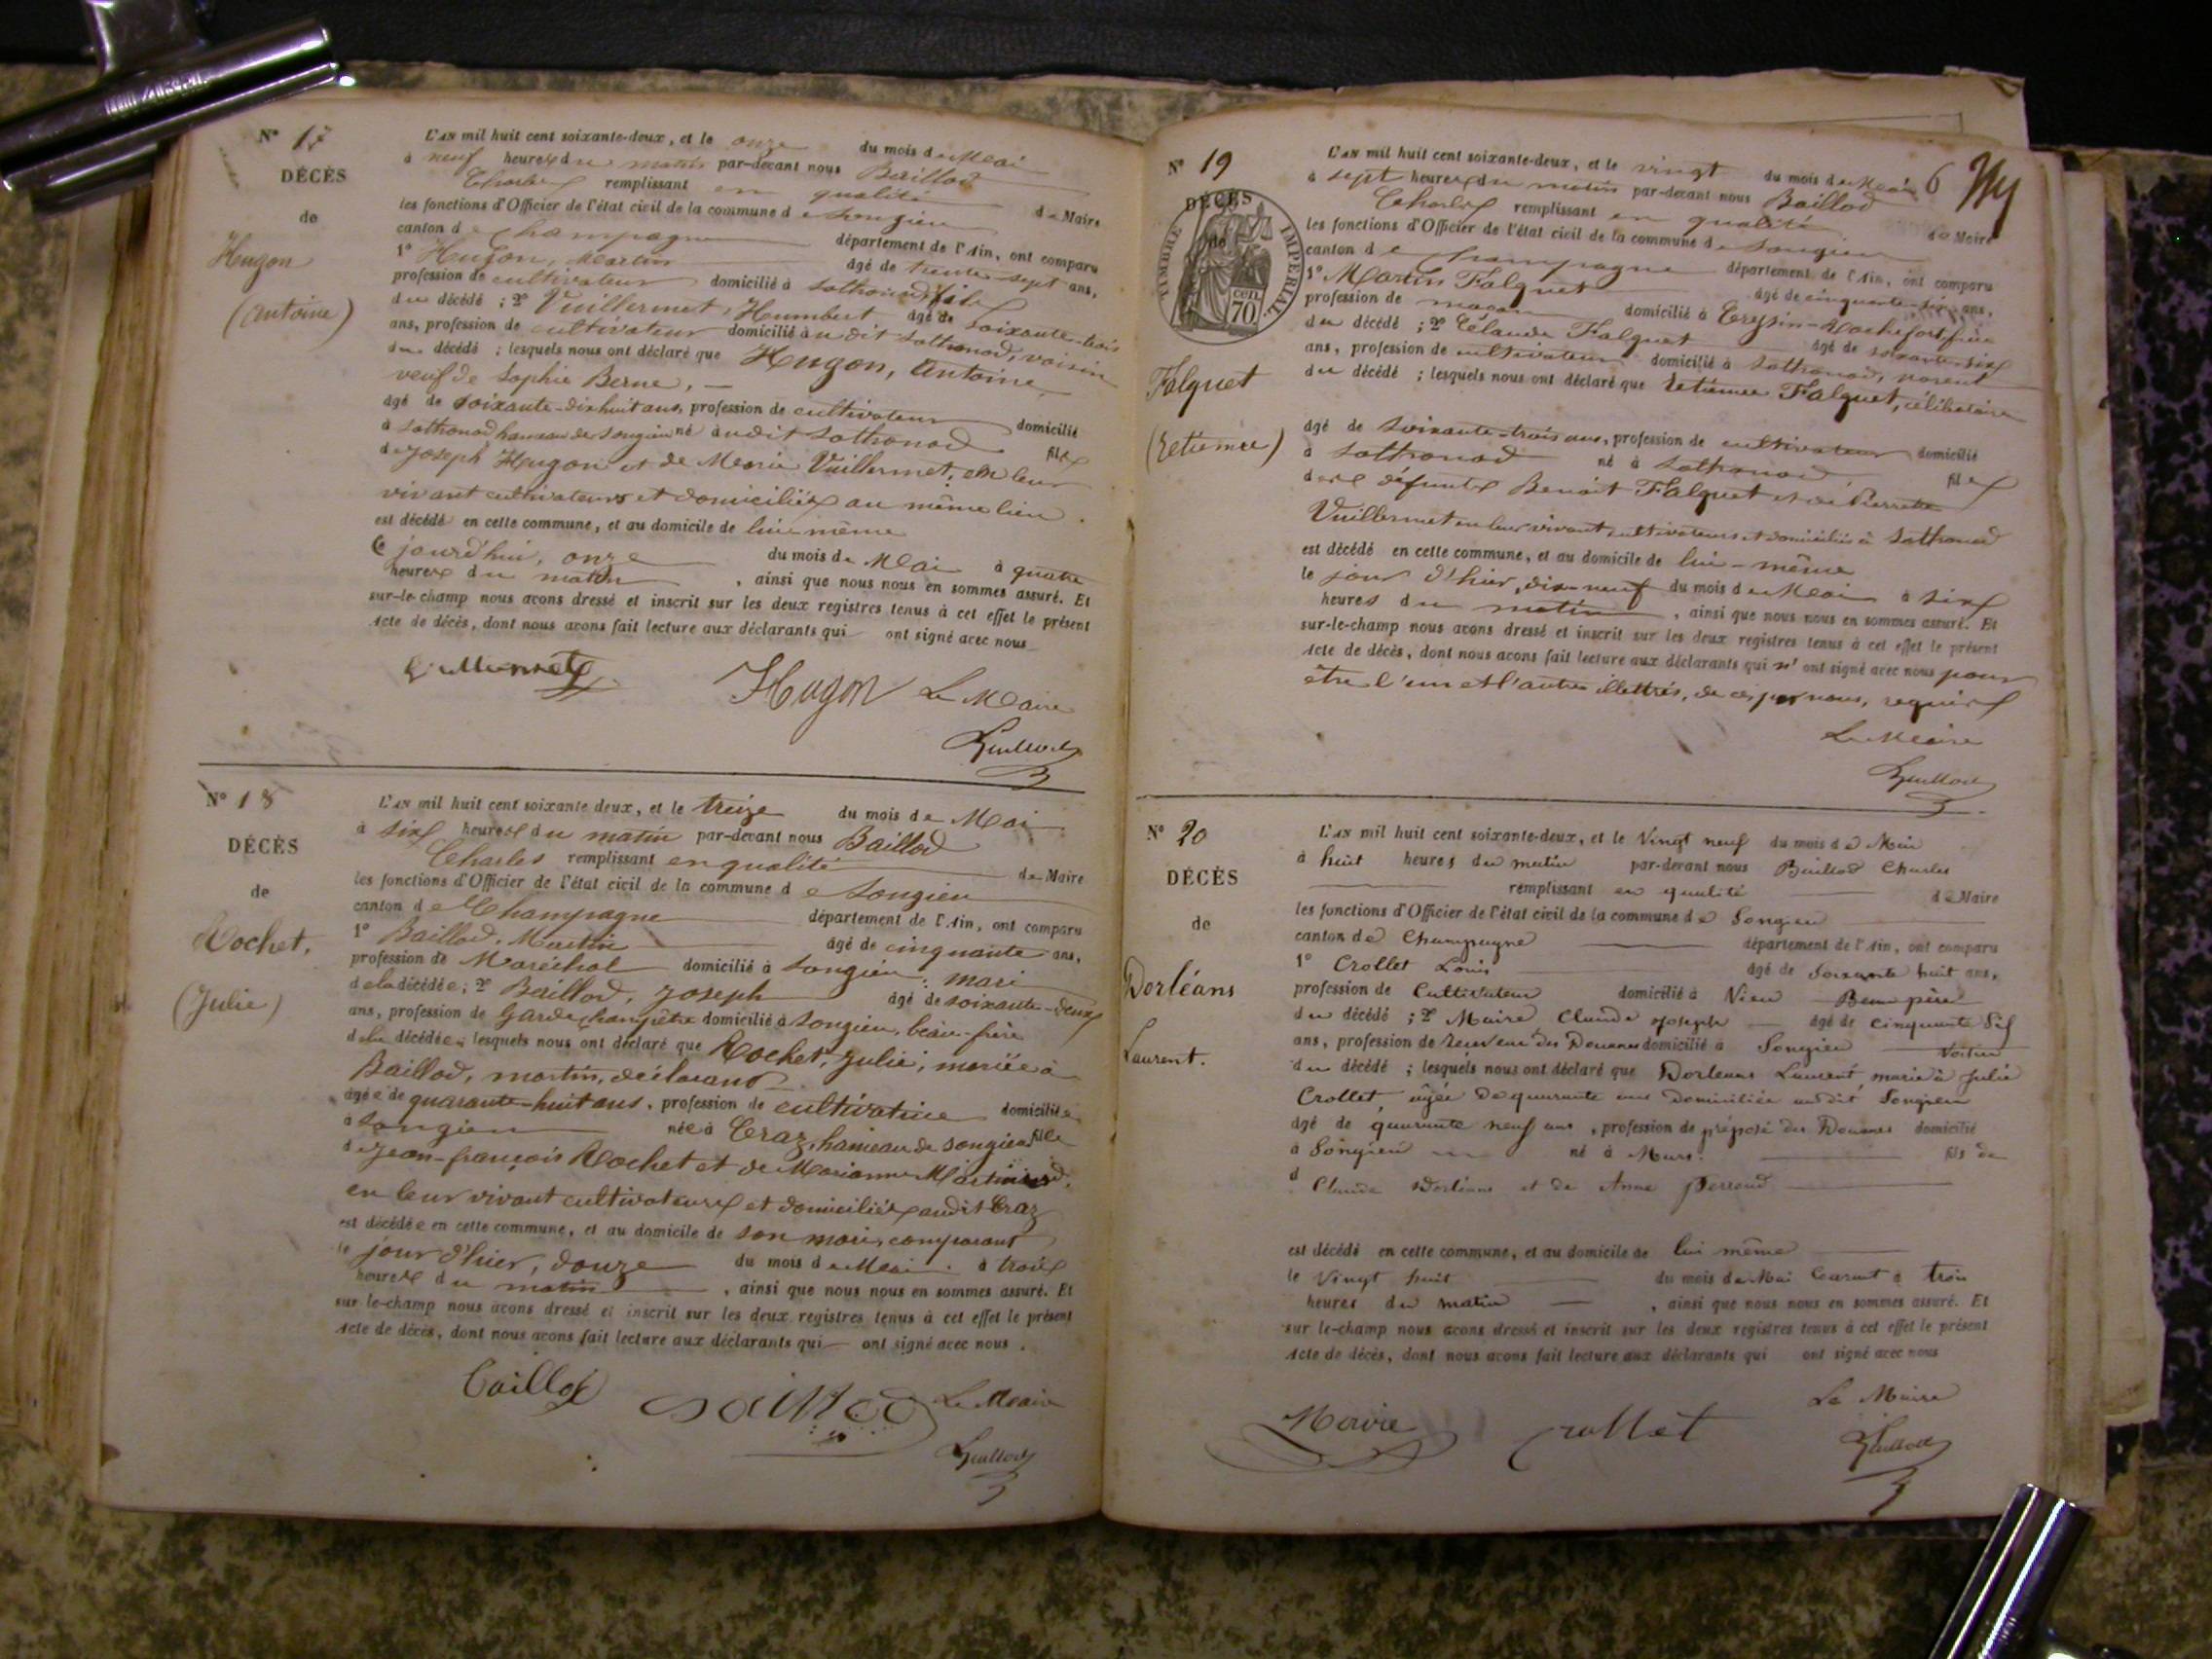 N° 17
DÉCÈS
de
Hugon
(Antoine)
L'AN mil huit cent soixante-deux, et le onze du mois de Mai
à neuf heures du matin par-devant nous Baillod
Charles remplissant en qualité de Maire
les fonctions d'Officier de l'état civil de la commune de Songieu
canton de Champagne département de l'Ain, ont comparu
1° Hugon, Martin âgé de trente-sept ans,
profession de cultivateur domicilié à Sothonod, fils
du décédé ; 2° Vuillermet, Humbert âgé de soixante-trois
ans, profession de cultivateur domicilié à udit Sothonod, voisin
du décédé ; lesquels nous ont déclaré que Hugon, Antoine
veuf de Sophie Berne, —
âgé de soixante-dix huit ans, profession de cultivateur domicilié
à Sothonod hameau de Songieu né à udit Sothonod fils
de Joseph Hugon et de Marie Vuillermet, en leur
vivant cultivateurs et domiciliés au même lieu
est décédé en cette commune, et au domicile de lui-même
Ce jourd'hui, onze du mois de Mai à quatre
heures du matin, ainsi que nous nous en sommes assuré. Et
sur-le-champ nous avons dressé et inscrit sur les deux registres tenus à cet effet le présent
Acte de décès, dont nous avons fait lecture aux déclarants qui ont signé avec nous
Hugon Le Maire
N° 18
DÉCÈS
de
Rochet,
(Julie)
L'AN mil huit cent soixante deux, et le treize du mois de Mai
à six heures du matin par-devant nous Baillod
Charles remplissant en qualité de Maire
les fonctions d'Officier de l'état civil de la commune de Songieu
canton de Champagne département de l'Ain, ont comparu
1° Baillod, Martin âgé de cinquante ans,
profession de Maréchal domicilié à Songieu, mari
de la décédée ; 2° Baillod, Joseph âgé de soixante-deux
ans, profession de Garde champêtre domicilié à Songieu, beau-frère
de la décédée ; lesquels nous ont déclaré que Rochet, Julie, mariée à
Baillod, martin, déclarant
âgée de quarante-huit ans, profession de cultivatrice domiciliée
à Songieu née à Craz, hameau de Songieu fille
de Jean-françois Rochet et de Marianne
en leur vivant cultivateurs et domiciliés audit Craz
est décédée en cette commune, et au domicile de son mari, comparant
le jour d'hier, douze du mois de Mai à trois
heures du matin, ainsi que nous nous en sommes assuré. Et
sur le-champ nous avons dressé et inscrit sur les deux registres tenus à cet effet le présent
Acte de décès, dont nous avons fait lecture aux déclarants qui ont signé avec nous.
Baillod Le Maire
N° 19
6
DÉCÈS
de
TIMBRE IMPÉRIAL
70 cen
Falquet
(Etienne)
L'AN mil huit cent soixante-deux, et le vingt du mois de Mai
à sept heures du matin par-devant nous Baillod
Charles remplissant en qualité de Maire
les fonctions d'Officier de l'état civil de la commune de Songieu
canton de Champagne département de l'Ain, ont comparu
1° Martin Falquet âgé de cinquante-six ans,
profession de maçon domicilié à Corbonod-Rochefort, frère
du décédé ; 2° Claude Falquet âgé de soixante-six
ans, profession de cultivateur domicilié à Sothonod, parent
du décédé ; lesquels nous ont déclaré que Etienne Falquet, célibataire
âgé de soixante-trois ans, profession de cultivateur domicilié
à Sothonod né à Sothonod fils
des défunts Benoit Falquet et de Pierrette
Vuillermet en leur vivant cultivateurs et domiciliés à Sothonod
est décédé en cette commune, et au domicile de lui-même
le jour d'hier, dix-neuf du mois de Mai à six
heures du matin, ainsi que nous nous en sommes assuré. Et
sur-le-champ nous avons dressé et inscrit sur les deux registres tenus à cet effet le présent
Acte de décès, dont nous avons fait lecture aux déclarants qui n'ont signé avec nous pour
être l'un et l'autre illettrés, de ce, par nous, requis
Le Maire
N° 20
DÉCÈS
de
Dorléans
Laurent.
L'AN mil huit cent soixante-deux, et le Vingt neuf du mois de Mai
à huit heures du matin par-devant nous Baillod Charles
remplissant en qualité de Maire
les fonctions d'Officier de l'état civil de la commune de Songieu
canton de Champagne département de l'Ain, ont comparu
1° Crollet Louis âgé de Soixante huit ans,
profession de Cultivateur domicilié à Vieu Beau père
du décédé ; 2° Maire Claude Joseph âgé de cinquante six
ans, profession de Receveur des Douanes domicilié à Songieu Voisin
du décédé ; lesquels nous ont déclaré que Dorleans Laurent, marié à Julie
Crollet, agée de quarante ans Domiciliée audit Songieu
âgé de quarante neuf ans, profession de préposé des Douanes domicilié
à Songieu né à Murs. fils de
d Claude Dorléans et de Anne Perroud
est décédé en cette commune, et au domicile de lui même
le Vingt huit du mois de Mai Courant à trois
heures du matin, ainsi que nous nous en sommes assuré. Et
sur le-champ nous avons dressé et inscrit sur les deux registres tenus à cet effet le présent
Acte de décès, dont nous avons fait lecture aux déclarants qui ont signé avec nous
Maire Crollet Le Maire